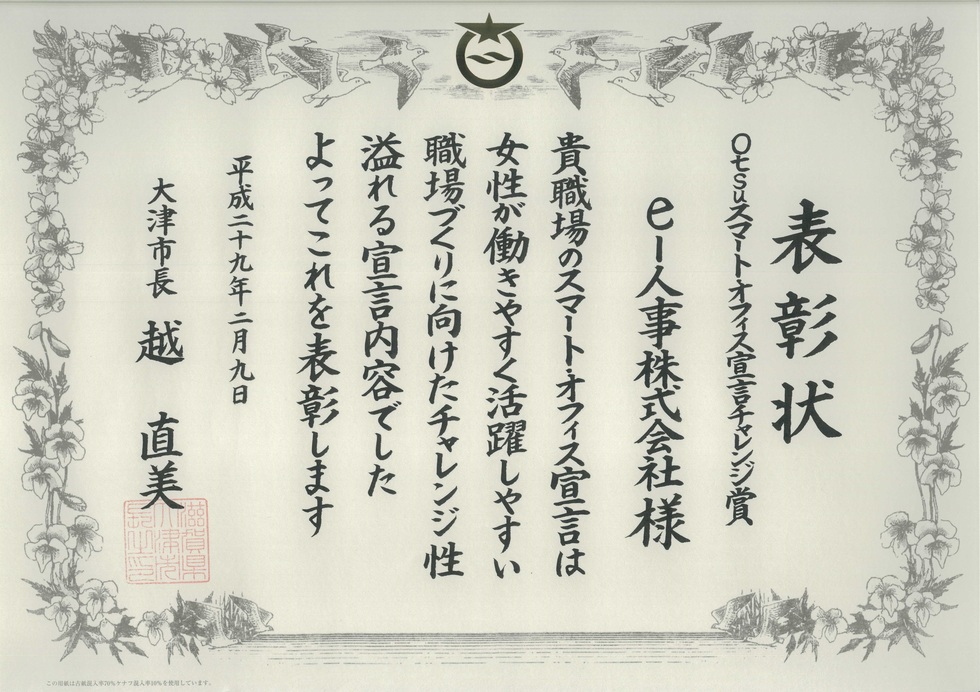 表彰状
Otsuスマート・オフィス宣言チャレンジ賞
eー人事株式会社様
貴職場のスマート・オフィス宣言は
女性が働きやすく活躍しやすい
職場づくりに向けたチャレンジ性
溢れる宣言内容でした
よってこれを表彰します
平成二十九年二月九日
大津市長 越 直美
滋賀県
大津市
長之印
この用紙は古紙混入率70%ケナフ混入率30%を使用しています。